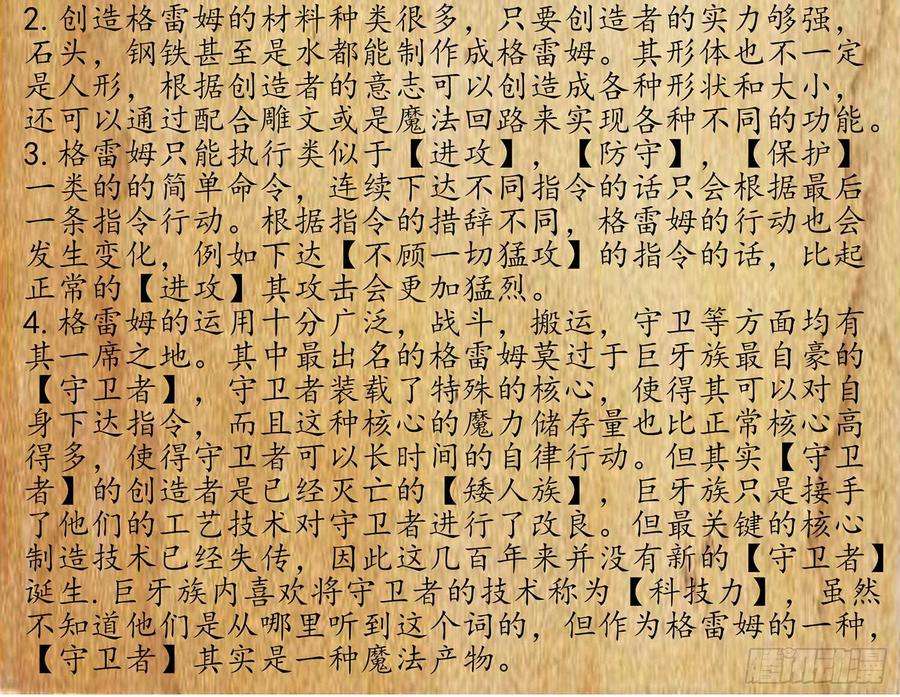 2. 创造格雷姆的材料种类很多，只要创造者的实力够强，
石头，钢铁甚至是水都能制作成格雷姆。其形体也不一定
是人形，根据创造者的意志可以创造成各种形状和大小，
还可以通过配合雕文或是魔法回路来实现各种不同的功能。
3. 格雷姆只能执行类似于【进攻】，【防守】，【保护】
一类的的简单命令，连续下达不同指令的话只会根据最后
一条指令行动。根据指令的措辞不同，格雷姆的行动也会
发生变化，例如下达【不顾一切猛攻】的指令的话，比起
正常的【进攻】其攻击会更加猛烈。
4. 格雷姆的运用十分广泛，战斗，搬运，守卫等方面均有
其一席之地。其中最出名的格雷姆莫过于巨牙族最自豪的
【守卫者】，守卫者装载了特殊的核心，使得其可以对自
身下达指令，而且这种核心的魔力储存量也比正常核心高
得多，使得守卫者可以长时间的自律行动。但其实【守卫
者】的创造者是已经灭亡的【矮人族】，巨牙族只是接手
了他们的工艺技术对守卫者进行了改良。但最关键的核心
制造技术已经失传，因此这几百年来并没有新的【守卫者】
诞生. 巨牙族内喜欢将守卫者的技术称为【科技力】，虽然
不知道他们是从哪里听到这个词的，但作为格雷姆的一种，
【守卫者】其实是一种魔法产物。
腾讯动漫